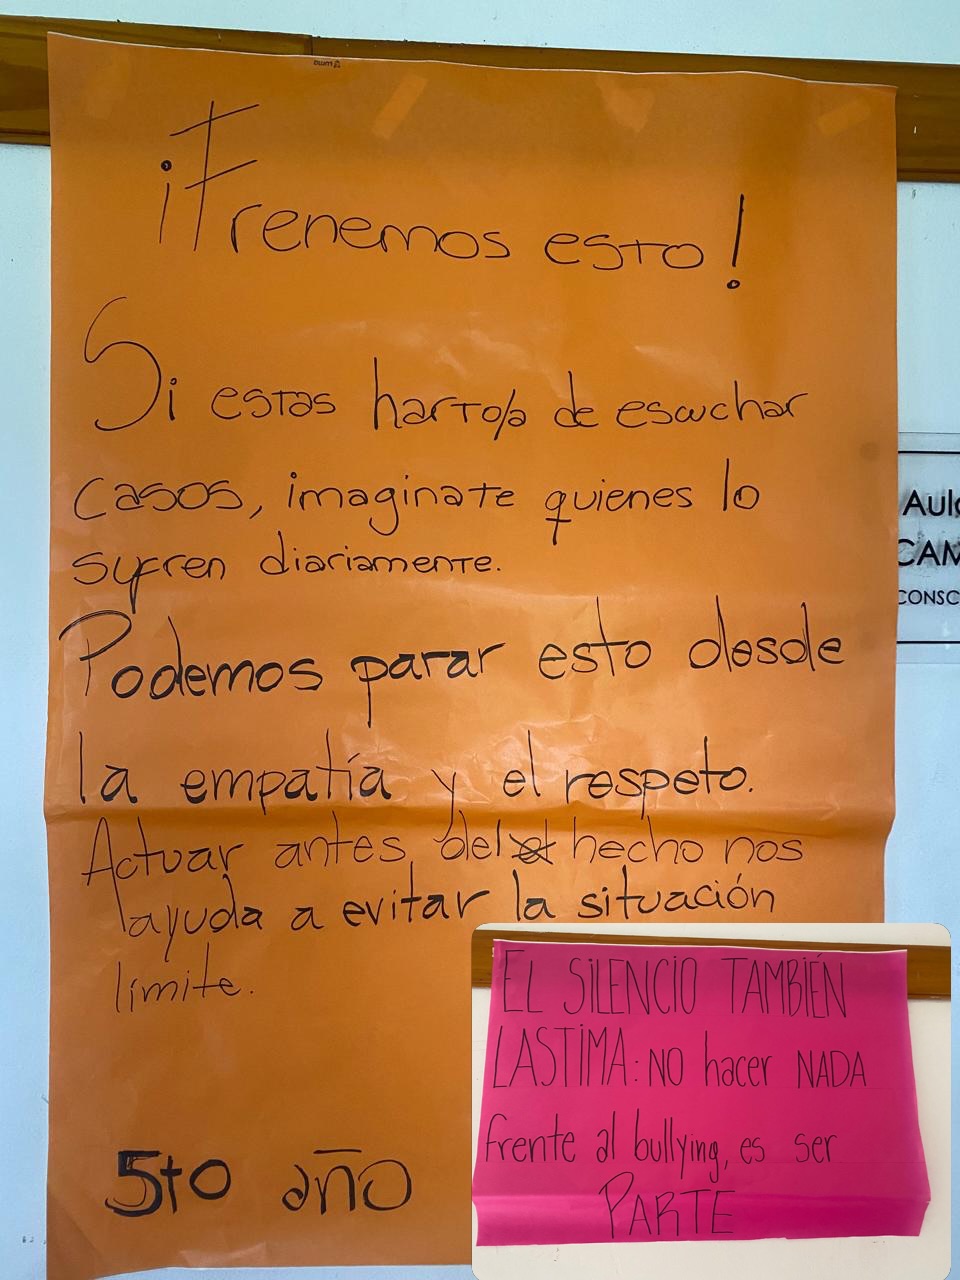 ¡Frenemos esto!
Si estas harto/a de escuchar
casos, imaginate quienes lo
sufren diariamente.
Podemos parar esto desde
la empatía y el respeto.
Actuar antes del hecho nos
ayuda a evitar la situación
límite.
5to año
Aula
CAM
CONSC
EL SILENCIO TAMBIÉN
LASTIMA: NO hacer NADA
frente al bullying, es ser
PARTE